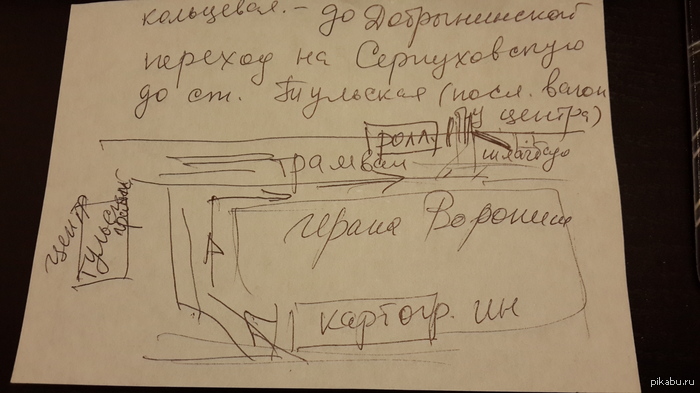 кольцевая. – до Добрынинской
переход на Серпуховскую
до ст. Тульская (посл. вагон
у центра)
ролл
шлагбаум
трамваи
центр
Тульская
гер
Воронин
картогр. ин
pikabu.ru